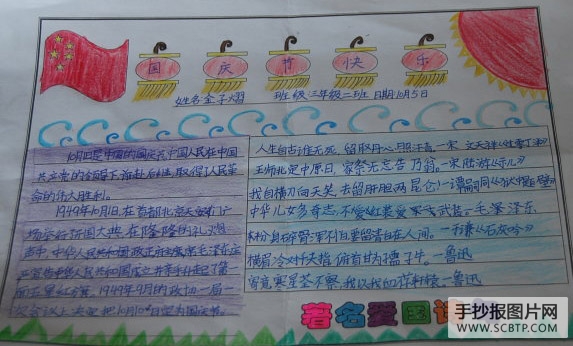 国庆节快乐
姓名 金子熠 班级 三年级二班 日期 10月5日
10月1日是中国的国庆节中国人民在中国
共产党的领导下前赴后继,取得了人民革
命的伟大胜利。
1949年10月1日,在首都北京天安门广
场举行开国大典,在隆隆的礼炮
声中,中华人民共和国政府主席毛泽东庄
严宣告中华人民共和国成立并亲手升起了第
一面五星红旗。1949年9月的政协一届一
次会议上决定把10月1日定为国庆节。
人生自古谁无死 留取丹心照汗青。—宋 文天祥《过零丁洋》
王师北定中原日 家祭无忘告乃翁。—宋 陆游《示儿》
我自横刀向天笑,去留肝胆两昆仑—谭嗣同《狱中题壁》
中华儿女多奇志,不爱红装爱武装。毛泽东
粉 要留清白在人间。—于谦《石灰吟》
横眉冷对千夫指,俯首甘为孺子牛。—鲁迅
寄意寒星荃不察,我以我 荐轩辕。鲁迅
著名爱国诗
手抄报图片网
WWW.SCBTP.COM